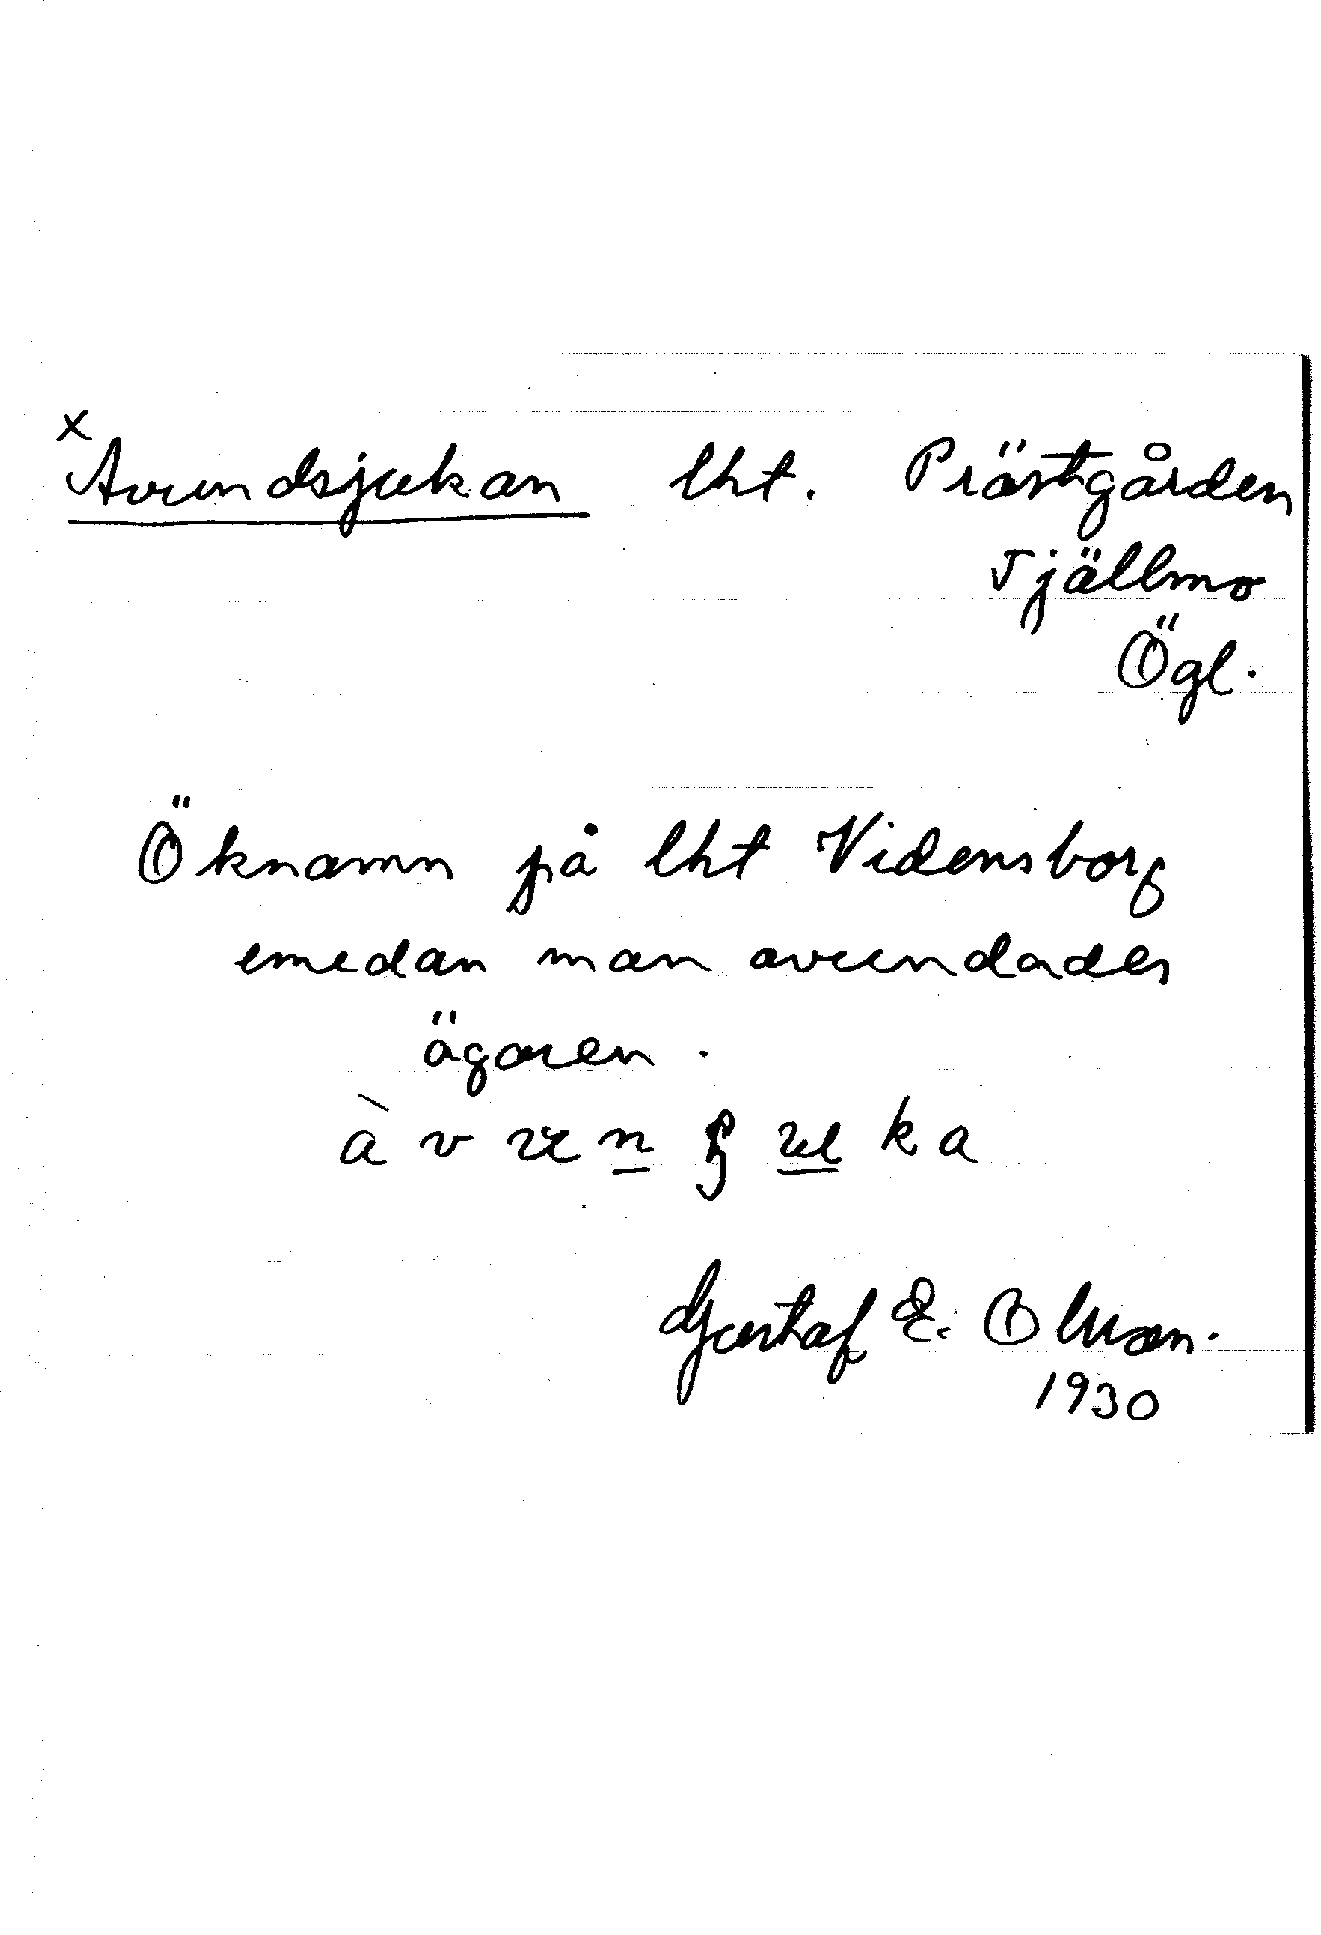 x
Avundsjukan lht. Prästgården
Tjällmo
Ögl.
Öknamn på lht Vidensborg
emedan man avundades
ägaren.
Gustaf E. Olsson.
1930